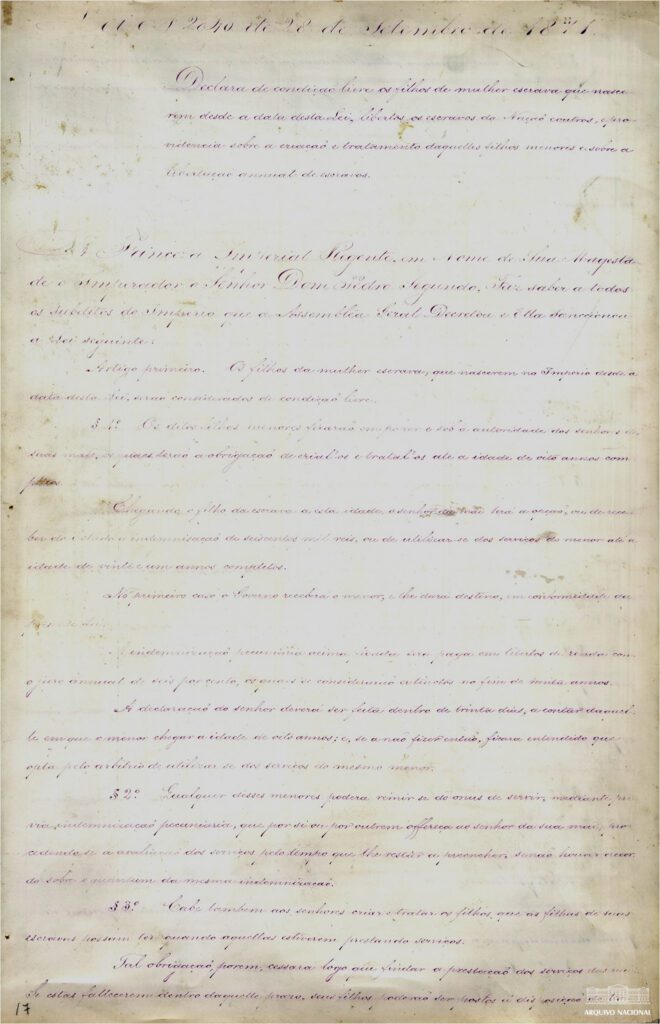 Lei N 2040 de 28 de Setembro de 1871.
Declara de condição livre os filhos de mulher escrava que nasce-
rem desde a data desta Lei, libertos os escravos da Nação e outros, e pro-
videncia sobre a criação e tratamento daquelles filhos menores e sobre a
libertação annual de escravos.
A Princeza Imperial Regente, em Nome de Sua Magesta-
de o Imperador o Senhor Dom Pedro Segundo, Faz saber a todos
os Subditos do Imperio que a Assembléa Geral Decretou e Ella Sanccionou
a Lei seguinte:
Artigo primeiro. Os filhos da mulher escrava, que nascerem no Imperio desde a
data desta Lei, serão considerados de condição livre.
§ 1º Os ditos filhos menores ficarão em poder e sob a autoridade dos senhores de
suas mãis, os quaes terão a obrigação de crial-os e tratal-os até a idade de oito annos com-
pletos.
Chegando o filho da escrava a esta idade, o senhor da mãi terá a opção, ou de rece-
ber do Estado a indemnisação de seiscentos mil reis, ou de utilizar-se dos serviços do menor até a
idade de vinte e um annos completos.
No primeiro caso o Governo receberá o menor, e lhe dará destino, em conformidade da
presente Lei.
A indemnização pecuniaria acima fixada será paga em titulos de renda com
o juro annual de seis por cento, os quaes se considerarão extinctos no fim de trinta annos.
A declaração do senhor deverá ser feita dentro de trinta dias, a contar daquel-
le em que o menor chegar a idade de oito annos; e, se a não fizer então, ficará entendido que
opta pelo arbitrio de utilizar-se dos serviços do mesmo menor.
§ 2º Qualquer desses menores poderá remir-se do onus de servir, mediante pré-
via indemnização pecuniaria, que por si ou por outrem offereça ao senhor da sua mãi, pro-
cedendo-se a avaliação dos serviços pelo tempo que lhe restar a preencher, se não houver accor-
do sobre o quantum da mesma indemnização.
§ 3º Cabe tambem aos senhores criar e tratar os filhos, que as filhas de suas
escravas possam ter quando aquellas estiverem prestando serviços.
Tal obrigação, porem, cessará logo que findar a prestação dos serviços das
Se estas fallecerem dentro daquelle prazo, seus filhos poderão ser postos á disposição do
17
ARQUIVO NACIONAL